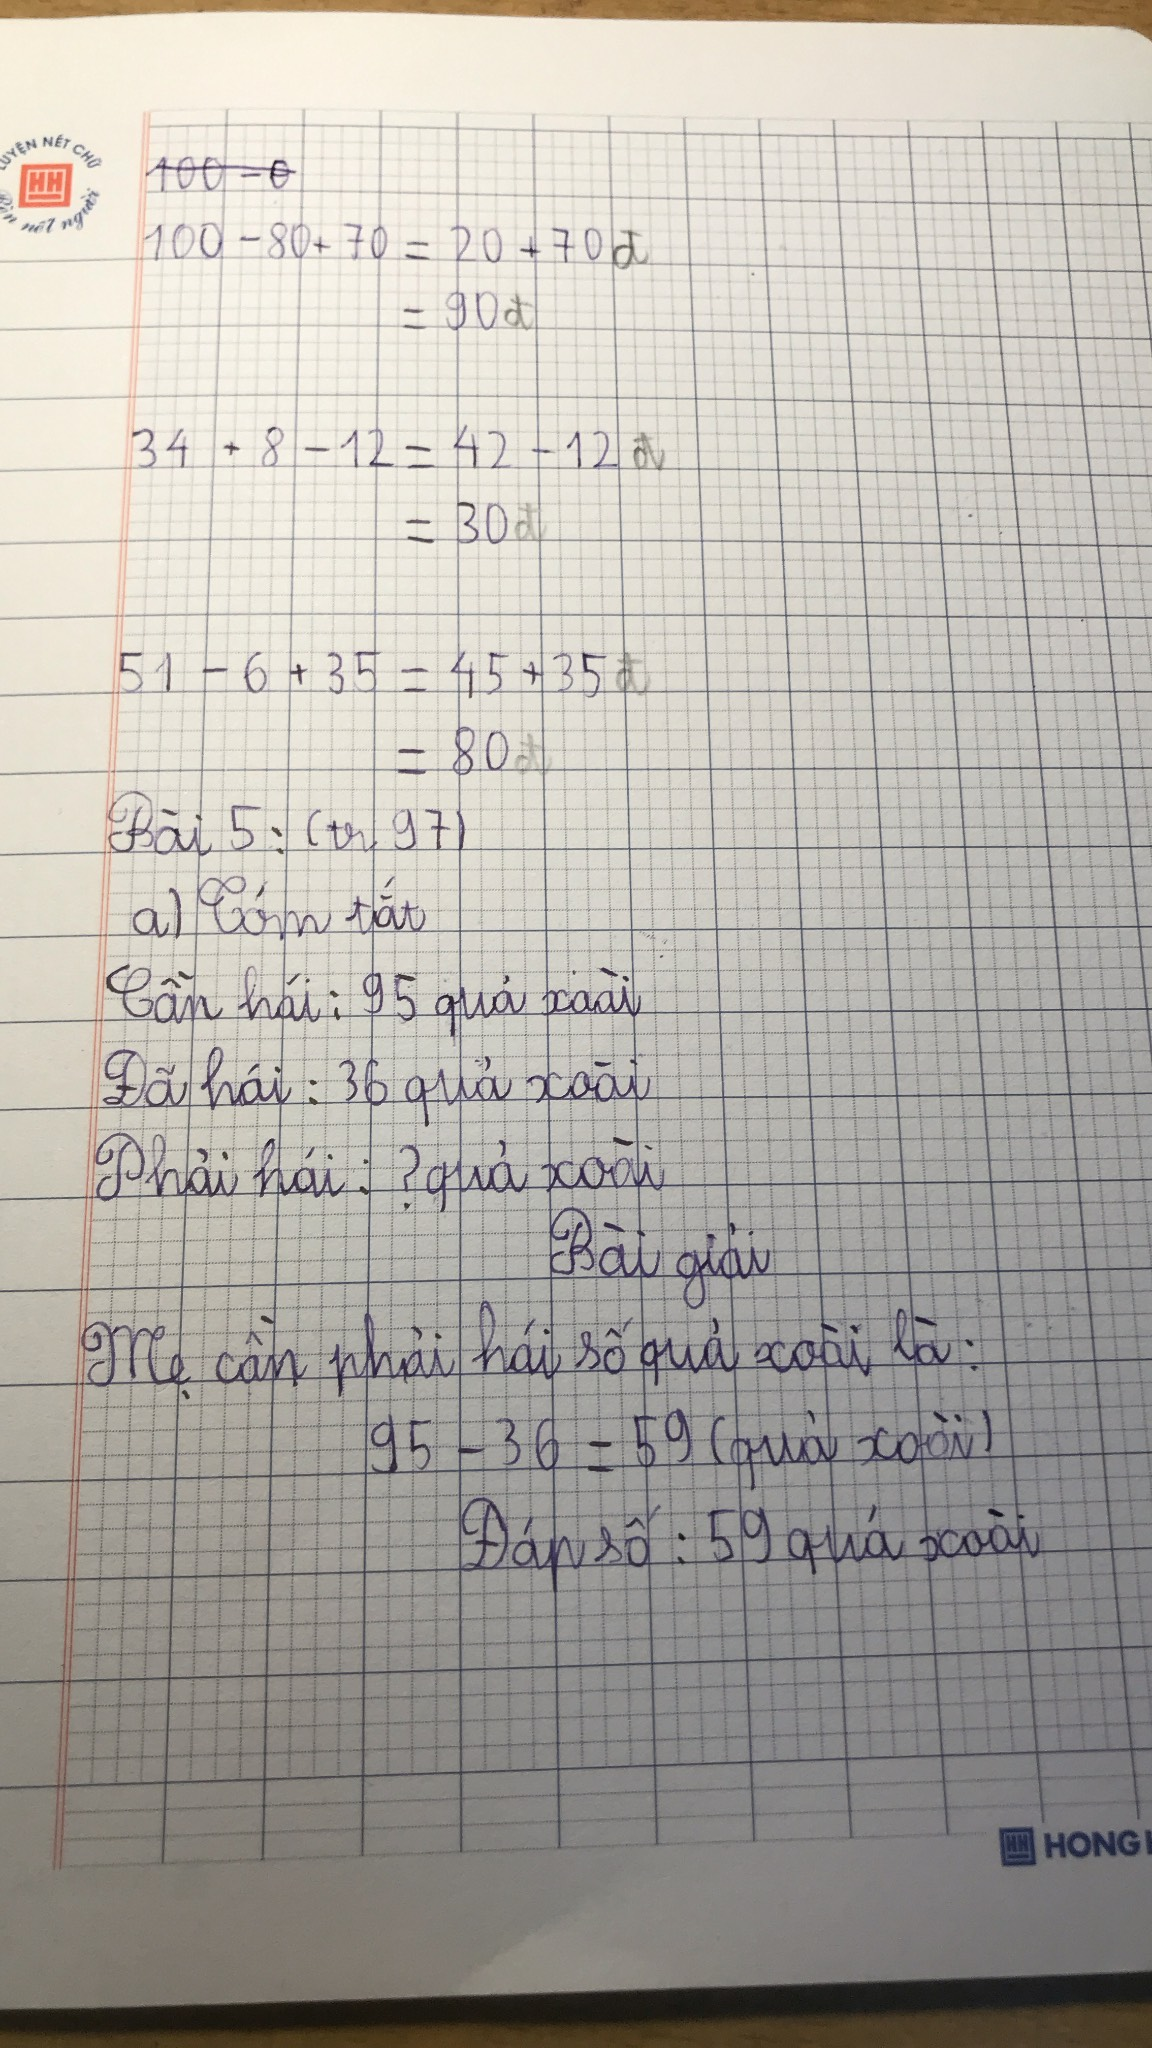 LUYỆN NÉT CHỮ
HH
nết người
100 - 0
100 - 80 + 70 = 20 + 70 đ
= 90 đ
34 + 8 - 12 = 42 - 12 đ
= 30 đ
51 - 6 + 35 = 45 + 35 đ
= 80 đ
Bài 5: (tr 97)
a) Tóm tắt
Cần hái: 95 quả xoài
Đã hái: 36 quả xoài
Phải hái: ? quả xoài
Bài giải
Mẹ cần phải hái số quả xoài là:
95 - 36 = 59 (quả xoài)
Đáp số: 59 quả xoài
HH HONG